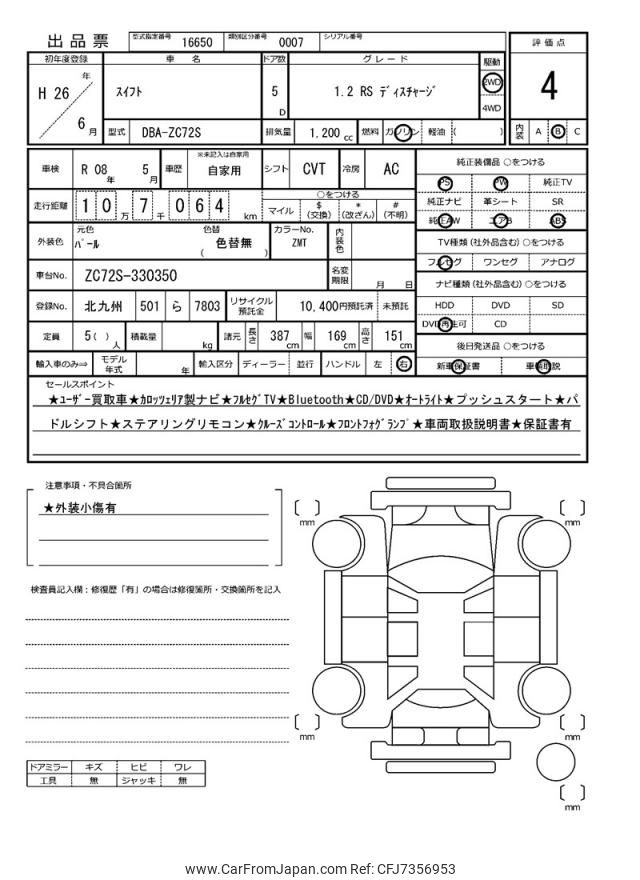 出品票 型式指定番号 16650 類別区分番号 0007 シリアル番号
評価点
4
内装 A B C
初年度登録 車名 ドア数 グレード 駆動
H 26 年 6 月 スイフト 5 D 1.2 RS ディスチャージ 2WD 4WD
型式 DBA-ZC72S 排気量 1,200 cc 燃料 ガソリン 軽油 ( )
車検 R 08 年 5 月 車歴 ※未記入は自家用 自家用 シフト CVT 冷房 AC
走行距離 1 0 万 7 千 0 6 4 km ○をつける
マイル $ (交換) * (改ざん) # (不明)
外装色 元色 パール 色替 色替無 ( ) カラーNo. ZMT 内装色
車台No. ZC72S-330350 名変期限 月 日
登録No. 北九州 501 ら 7803 リサイクル預託金 10,400円預託済 未預託
定員 5( ) 人 積載量 kg 諸元 長さ 387 cm 幅 169 cm 高さ 151 cm
輸入車のみ⇒ モデル年式 年 輸入区分 ディーラー 並行 ハンドル 左 右
純正装備品 ○をつける
PS PW 純正TV
純正ナビ 革シート SR
純正AW エアB ABS
TV種類 (社外品含む) ○をつける
フルセグ ワンセグ アナログ
ナビ種類 (社外品含む) ○をつける
HDD DVD SD
DVD再生可 CD
後日発送品 ○をつける
新車保証書 車輌取説
セールスポイント
★ユーザー買取車★カロッツェリア製ナビ★フルセグTV★Bluetooth★CD/DVD★オートライト★プッシュスタート★パ
ドルシフト★ステアリングリモコン★クルーズコントロール★フロントフォグランプ★車両取扱説明書★保証書有
注意事項・不具合箇所
★外装小傷有
検査員記入欄:修復歴「有」の場合は修復箇所・交換箇所を記入
ドアミラー キズ ヒビ ワレ
工具 無 ジャッキ 無
mm
mm
mm
mm
mm
www.CarFromJapan.com Ref: CFJ7356953